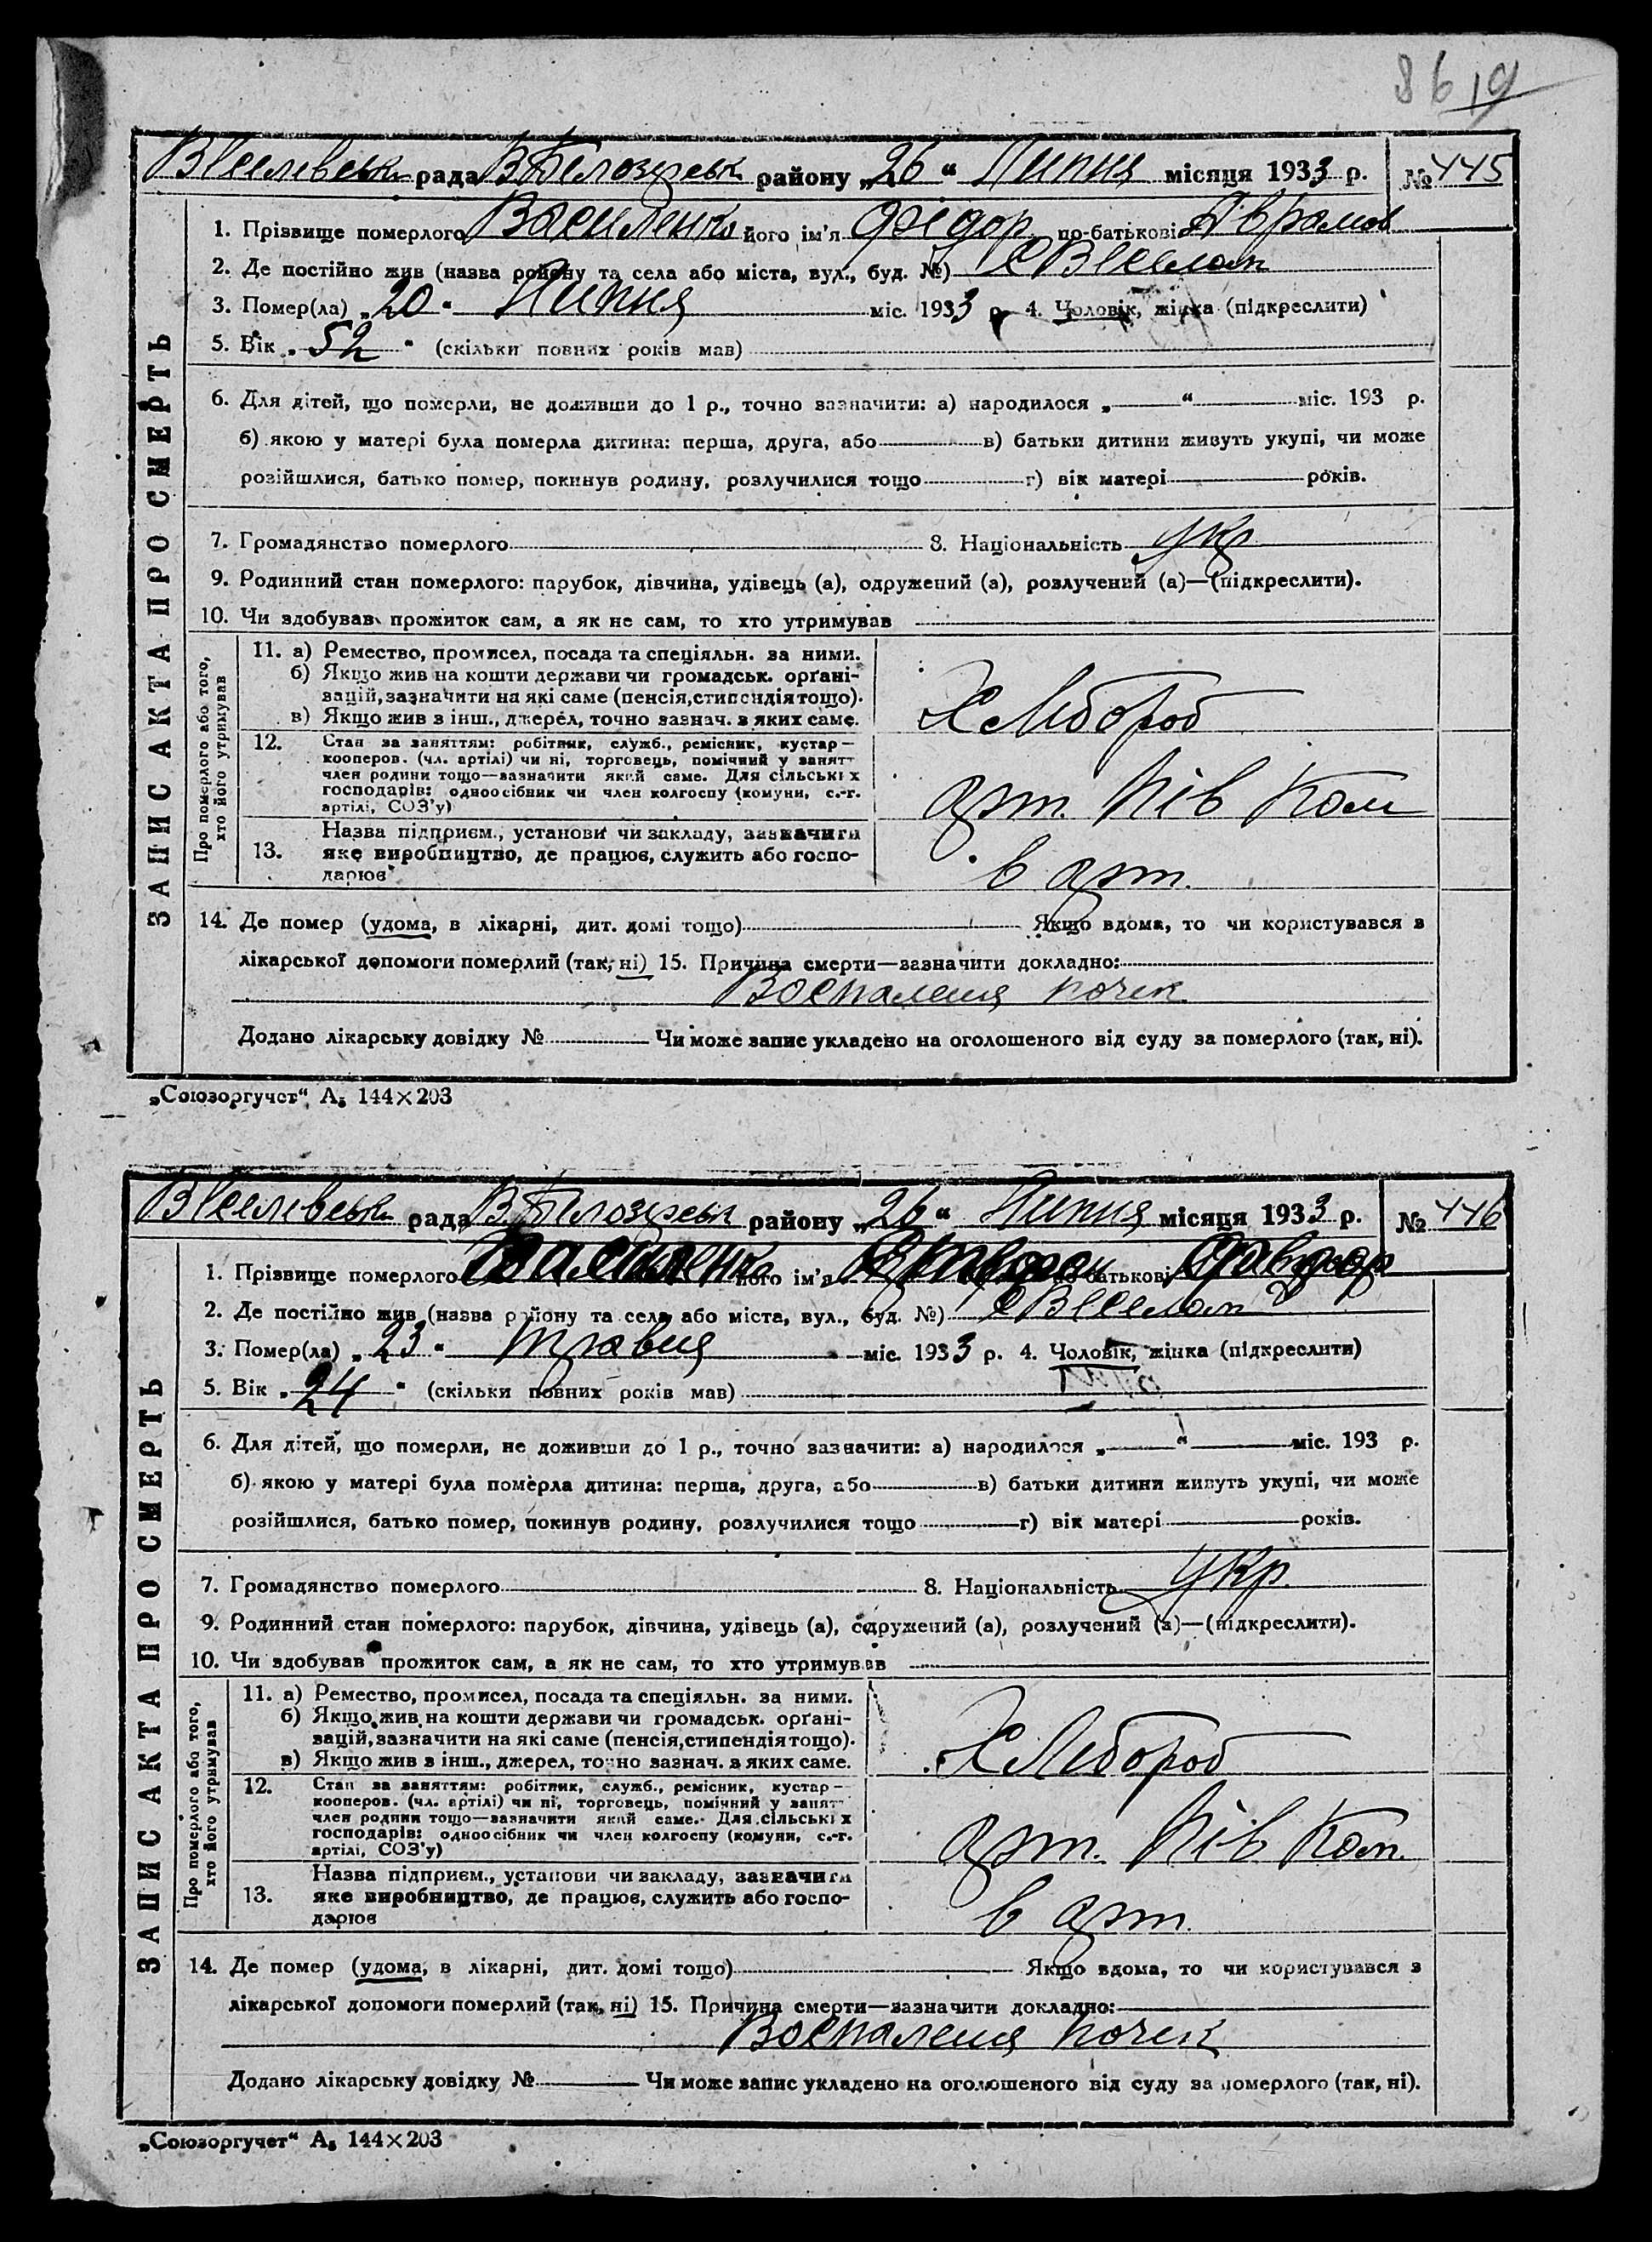 86 19
рада В Білозерськ району „26“ Липня місяця 1933 р. № 445
1. Прізвище померлого Василенко його ім'я Федор по-батькові Аврамов
2. Де постійно жив (назва району та села або міста, вул., буд. №)
3. Помер(ла) „20“ Липня міс. 1933 р. 4. Чоловік, жінка (підкреслити)
5. Вік „52“ (скільки повних років мав)
6. Для дітей, що померли, не доживши до 1 р., точно зазначити: а) народилося „ “ міс. 193 р.
б) якою у матері була померла дитина: перша, друга, або в) батьки дитини живуть укупі, чи може
розійшлися, батько помер, покинув родину, розлучилися тощо г) вік матері років.
7. Громадянство померлого 8. Національність укр
9. Родинний стан померлого: парубок, дівчина, удівець (а), одружений (а), розлучений (а)—(підкреслити).
10. Чи здобував прожиток сам, а як не сам, то хто утримував
ЗАПИС АКТА ПРО СМЕРТЬ
Про померлого або того,
хто його утримував
11. а) Ремество, промисел, посада та спеціяльн. за ними.
б) Якщо жив на кошти держави чи громадськ. орґані-
зацій, зазначити на які саме (пенсія, стипендія тощо).
в) Якщо жив з інш., джерел, точно зазнач. з яких саме.
Хлібороб
12. Стан за заняттям: робітник, служб., ремісник, кустар—
кооперов. (чл. артілі) чи ні, торговець, помічний у занят-
член родини тощо—зазначити який саме. Для сільських
господарів: одноосібник чи член колгоспу (комуни, с.-г.
артілі, СОЗ'у)
арт.
13. Назва підприєм., установи чи закладу, зазначити
яке виробництво, де працює, служить або госпо-
дарює
в арт.
14. Де помер (удома, в лікарні, дит. домі тощо) Якщо вдома, то чи користувався з
лікарської допомоги померлий (так, ні) 15. Причина смерти—зазначити докладно:
Воспаления почек
Додано лікарську довідку № Чи може запис укладено на оголошеного від суду за померлого (так, ні).
„Союзоргучет“ А₅ 144×203
рада В Білозерськ району „26“ Липня місяця 1933 р. № 446
1. Прізвище померлого Василенко його ім'я по-батькові
2. Де постійно жив (назва району та села або міста, вул., буд. №)
3. Помер(ла) „23“ травня міс. 1933 р. 4. Чоловік, жінка (підкреслити)
5. Вік „24“ (скільки повних років мав)
6. Для дітей, що померли, не доживши до 1 р., точно зазначити: а) народилося „ “ міс. 193 р.
б) якою у матері була померла дитина: перша, друга, або в) батьки дитини живуть укупі, чи може
розійшлися, батько помер, покинув родину, розлучилися тощо г) вік матері років.
7. Громадянство померлого 8. Національність укр.
9. Родинний стан померлого: парубок, дівчина, удівець (а), одружений (а), розлучений (а)—(підкреслити).
10. Чи здобував прожиток сам, а як не сам, то хто утримував
ЗАПИС АКТА ПРО СМЕРТЬ
Про померлого або того,
хто його утримував
11. а) Ремество, промисел, посада та спеціяльн. за ними.
б) Якщо жив на кошти держави чи громадськ. орґані-
зацій, зазначити на які саме (пенсія, стипендія тощо).
в) Якщо жив з інш., джерел, точно зазнач. з яких саме.
Хлібороб
12. Стан за заняттям: робітник, служб., ремісник, кустар—
кооперов. (чл. артілі) чи ні, торговець, помічний у занят-
член родини тощо—зазначити який саме. Для сільських
господарів: одноосібник чи член колгоспу (комуни, с.-г.
артілі, СОЗ'у)
арт.
13. Назва підприєм., установи чи закладу, зазначити
яке виробництво, де працює, служить або госпо-
дарює
в арт.
14. Де помер (удома, в лікарні, дит. домі тощо) Якщо вдома, то чи користувався з
лікарської допомоги померлий (так, ні) 15. Причина смерти—зазначити докладно:
Воспаления почек
Додано лікарську довідку № Чи може запис укладено на оголошеного від суду за померлого (так, ні).
„Союзоргучет“ А₅ 144×203